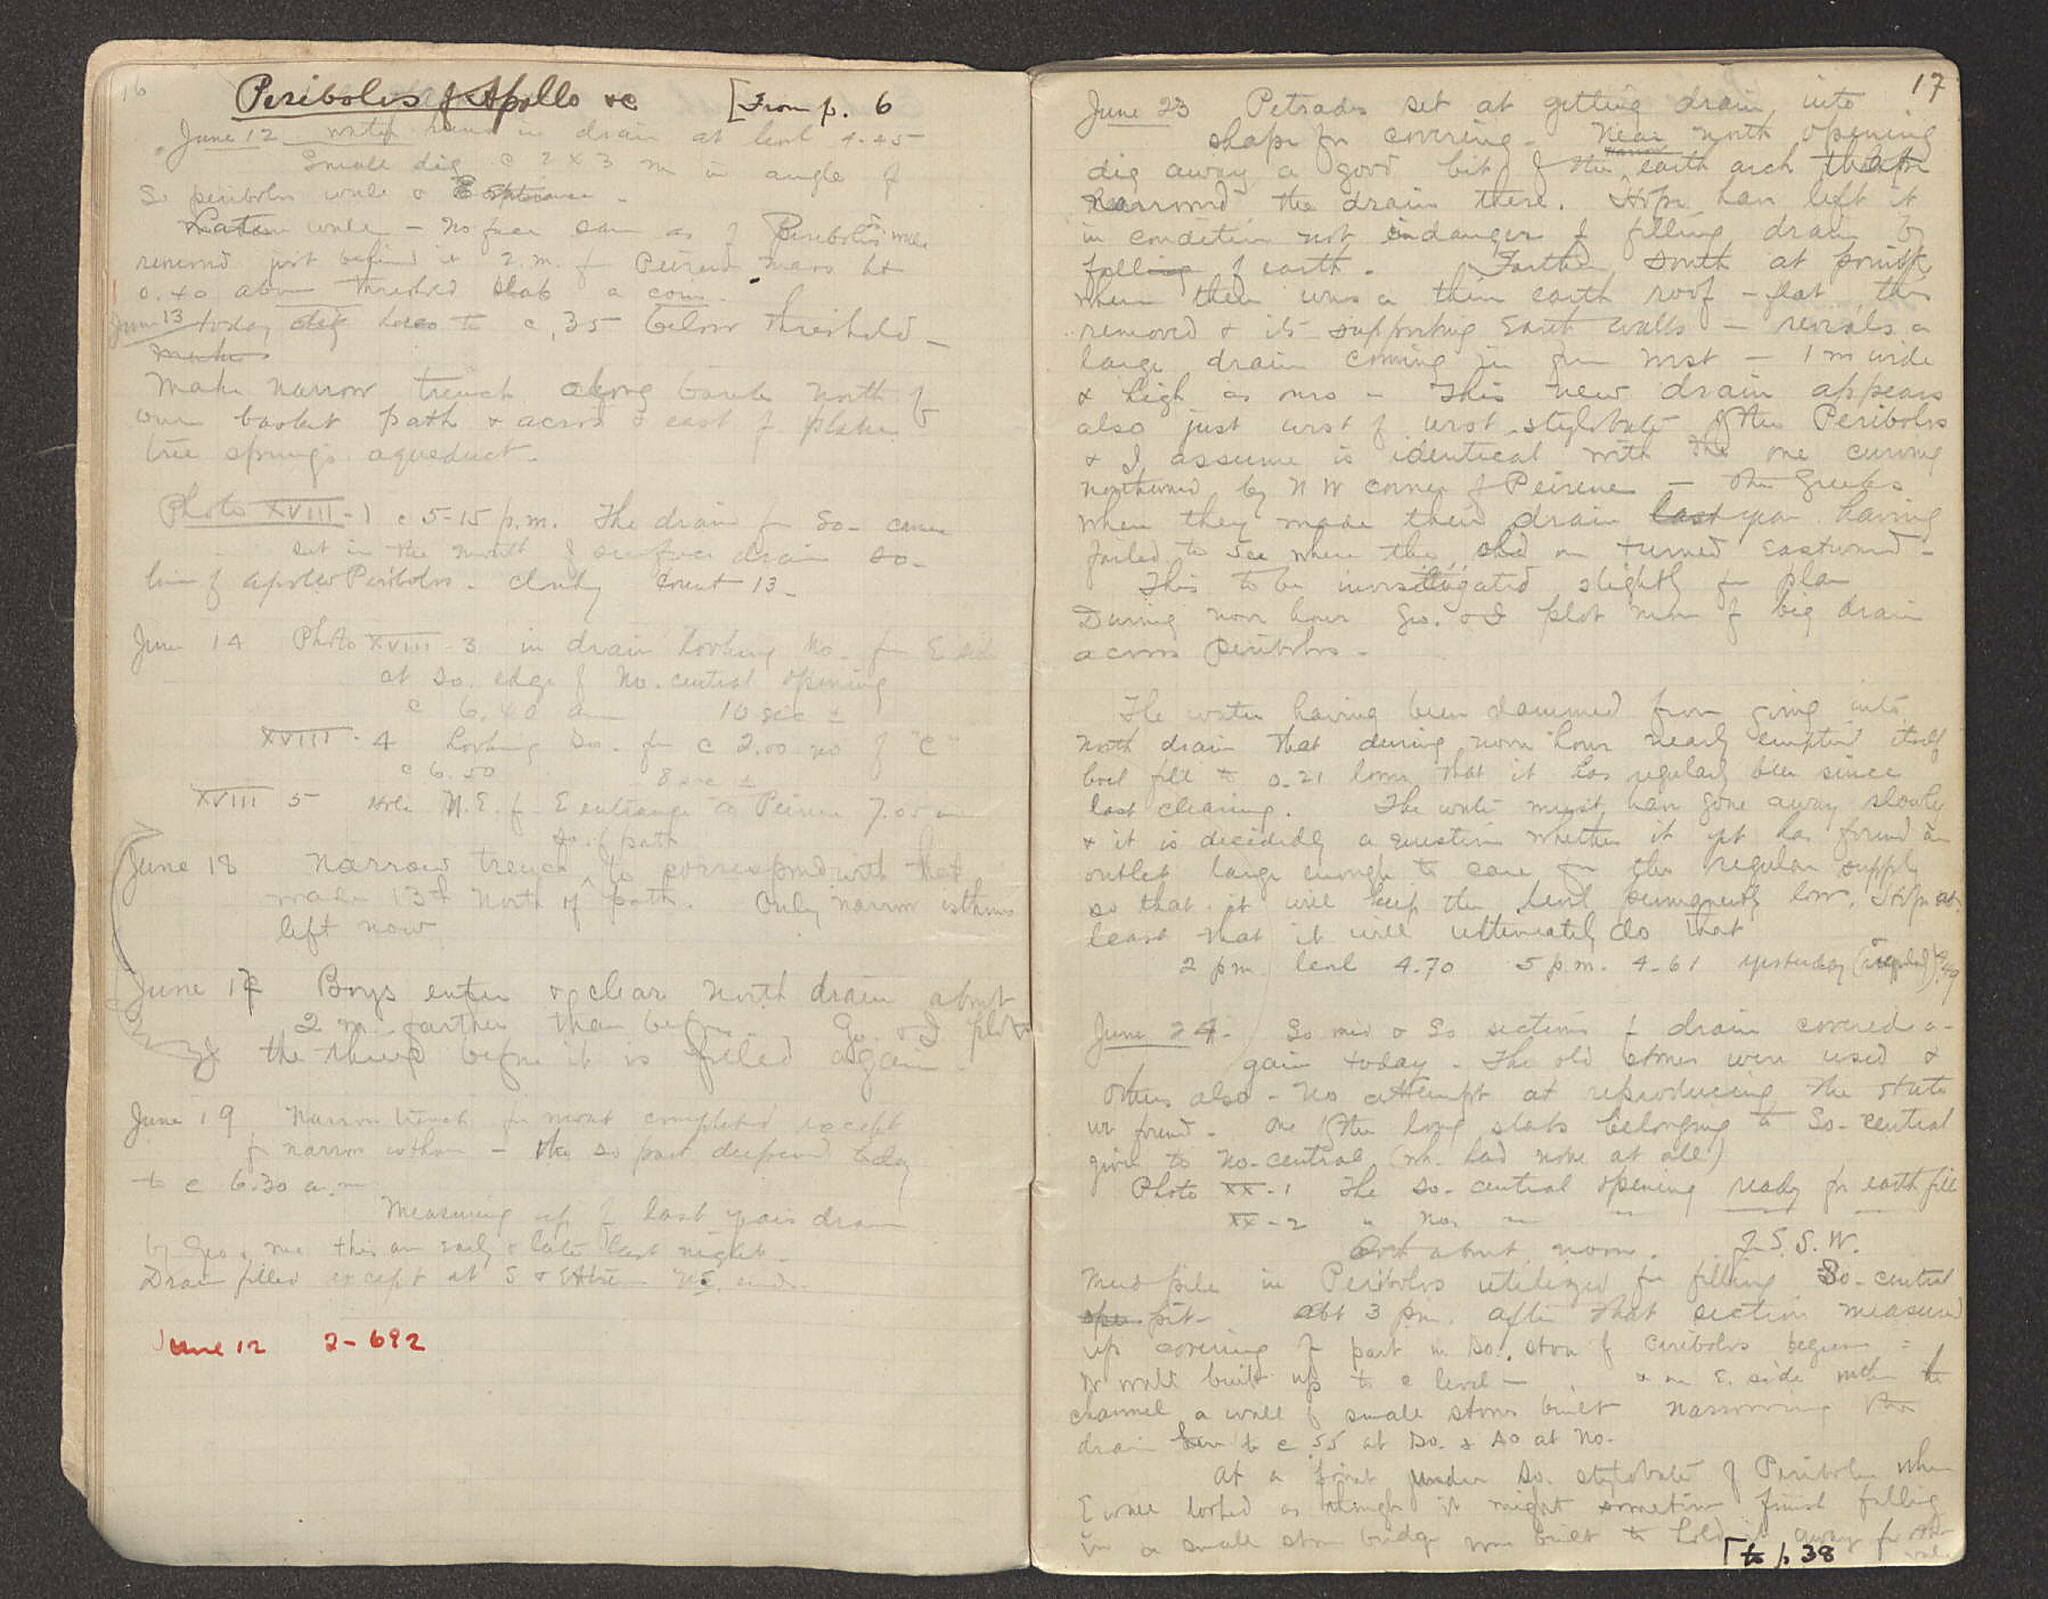 16
Peribolos of Apollo &c [From p. 6
June 12 water here in drain at level 4.45
Small dig c 2 x 3 m in angle of
So peribolos wall & E entrance.
wall - No face same as of Peribolos wall
removed just behind it 2 m. fr Peirene
0.40 above threshold slab a coin.
June 13 today dig here to c .35 below threshold -
make
Make narrow trench along bank North of
our basket path & across & east of plane
tree springs aqueduct.
Photo XVIII - 1 c 5-15 p.m. The drain fr So- corner
set in the mouth of surface drain so-
line of Apollo Peribolos. Cloudy Count 13 -
June 14 Photo XVIII - 3 in drain looking No. fr E side
at So. edge of No. central opening
c 6.40 am 10 sec ±
XVIII - 4 looking So. fr c 2.00 no of "C"
c 6.50 8 sec ±
XVIII 5 Hole N.E. fr E entrance to Peirene 7.05 am
So. of path
June 18 Narrow trench to correspond with that
made 13th North of path. Only narrow isthmus
left now
June 17 Boys enter & clear North drain about
2 m. farther than before. Geo. & I plot
the thing before it is filled again
June 19 Narrow trench for most completed except
for narrow isthmus - the so part deepened today
to c 6.30 a.m
Measuring up of last years drain
by Geo & me this am early & late last night.
Drain filled except at S & extreme No. end.
June 12 2-692
17
June 23 Petrados set at getting drain into
shape for covering. Near north opening
dig away a good bit of the narrow earth arch that
narrowed the drain there. Hope have left it
in condition not in danger of filling drain by
falling of earth. Farther south at point
where there was a thin earth roof - flat this
removed & its supporting earth walls - reveals a
large drain coming in from west - 1 m wide
& high as ours - This new drain appears
also just west of west stylobate of the Peribolos
& I assume is identical with the one curving
northward by N W corner of Peirene - The Greeks
when they made their drain last year having
failed to see where the old one turned eastward -
This to be investigated slightly for plan
During noon hour Geo. & I plot more of big drain
across Peribolos -
The water having been dammed from going into
north drain that during noon hour nearly emptied itself
but fell to 0.21 lower that it has regularly been since
last clearing. The water must have gone away slowly
& it is decidedly a question whether it yet has found an
outlet large enough to care for the regular supply
so that it will keep the level permanently low. I hope at
least that it will ultimately do that
2 pm. level 4.70 5 p.m. 4.61 yesterday (& regularly) 4.49
June 24 - So mid & So sections of drain covered a-
gain today. The old stones were used &
others also - no attempt at reproducing the state
we found. One of the long slabs belonging to So-central
given to No-central (wh. had none at all)
Photo XX - 1 The So-central opening ready for earth fill
XX - 2 " No. " "
Both about noon. J.S.S.W.
Mud pile in Peribolos utilized for filling So-central
pit - abt 3 pm. after that section measured
up covering of part in So. stoa of Peribolos begun =
W wall built up to c level - & on E. side in the
channel a wall of small stones built narrowing the
drain here to c .55 at So. & .40 at No.
At a point under So. stylobate of Peribolos when
E wall looked as though it might sometime finish falling
in a small stone bridge was built to hold it away fr other
wall
[to p. 38